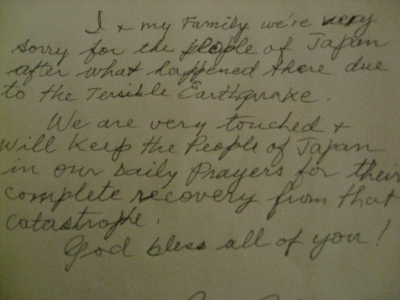 I & my Family we're very
sorry for the people of Japan
after what happened there due
to the Terrible Earthquake.
We are very touched &
will Keep the People of Japan
in our Daily Prayers for their
complete recovery from that
catastrophe.
God bless all of you!